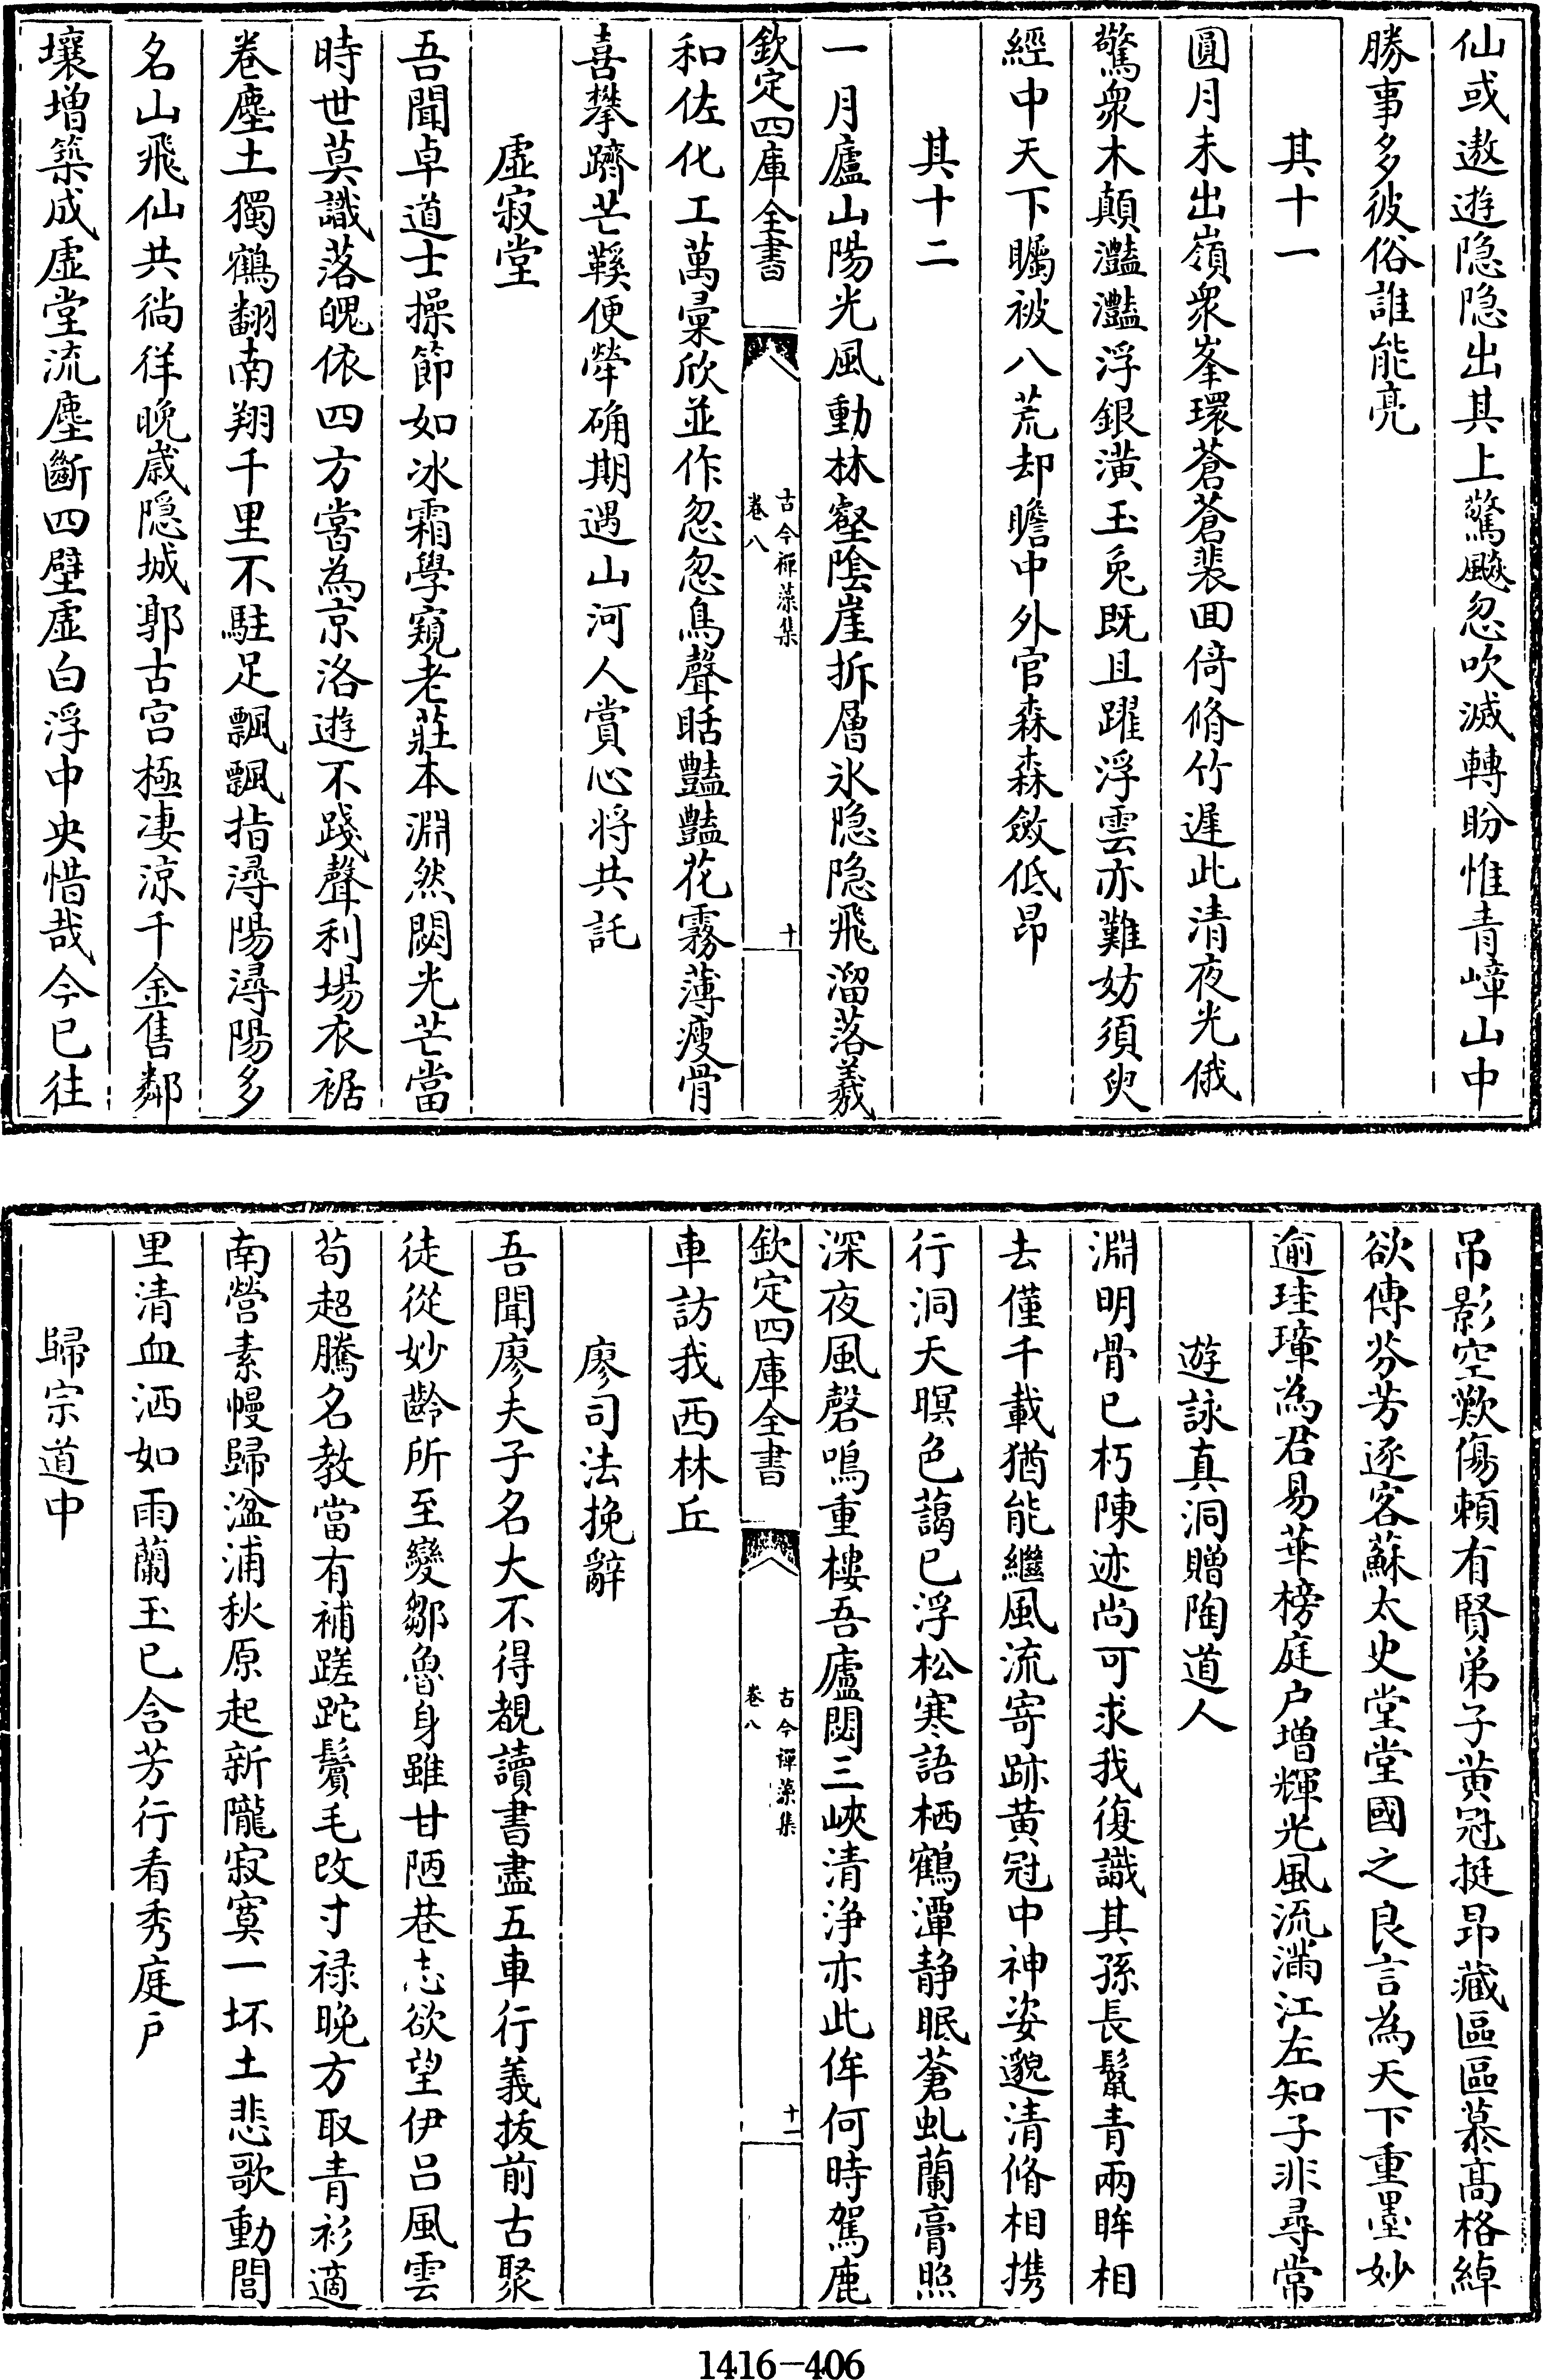 仙或遨遊隐隐出其上驚颷忽吹滅轉盼惟青嶂山中
勝事多彼俗誰能亮
其十一
圓月未出嶺衆峯環蒼蒼裴回倚脩竹遲此清夜光俄
驚衆木顛灩灩浮銀潢玉兎既且躍浮雲亦難妨須臾
經中天下矚被八荒却瞻中外官森森斂低昂
其十二
一月廬山陽光風動林壑陰崖拆層氷隐隐飛溜落羲
欽定四庫全書
古今禪藻集
卷八
十
和佐化工萬彚欣並作忽忽鳥聲聒豔豔花霧薄瘦骨
喜攀躋芒鞵便犖确期遇山河人賞心将共託
虛寂堂
吾聞卓道士操節如冰霜學窺老莊本淵然閟光芒當
時世莫識落魄依四方嘗為京洛遊不踐聲利場衣裾
卷塵土獨鶴翻南翔千里不駐足飄飄指潯陽潯陽多
名山飛仙共徜徉晚嵗隐城郭古宫極凄涼千金售鄰
壤増築成虚堂流塵斷四壁虚白浮中央惜哉今已往
吊影空歎傷頼有賢弟子黄冠挺昂藏區區慕髙格綽
欲傳芬芳逐客蘇太史堂堂國之良言為天下重墨妙
逾珪璋為君易華榜庭户増輝光風流滿江左知子非尋常
遊詠真洞贈陶道人
淵明骨已朽陳迹尚可求我復識其孫長鬣青兩眸相
去僅千載猶能繼風流寄跡黄冠中神姿邈清脩相携
行洞天暝色藹已浮松寒語栖鶴潭靜眠蒼虬蘭膏照
深夜風磬鳴重樓吾廬閟三峽清浄亦此侔何時駕鹿
欽定四庫全書
古今禪藻集
卷八
十一
車訪我西林丘
廖司法挽辭
吾聞廖夫子名大不得覩讀書盡五車行義拔前古聚
徒從妙齡所至變鄒魯身雖甘陋巷志欲望伊吕風雲
苟超騰名教當有補蹉跎鬢毛改寸禄晚方取青衫適
南營素幔歸湓浦秋原起新隴寂寞一坏土悲歌動閭
里清血洒如雨蘭玉已含芳行看秀庭户
歸宗道中
1416-406